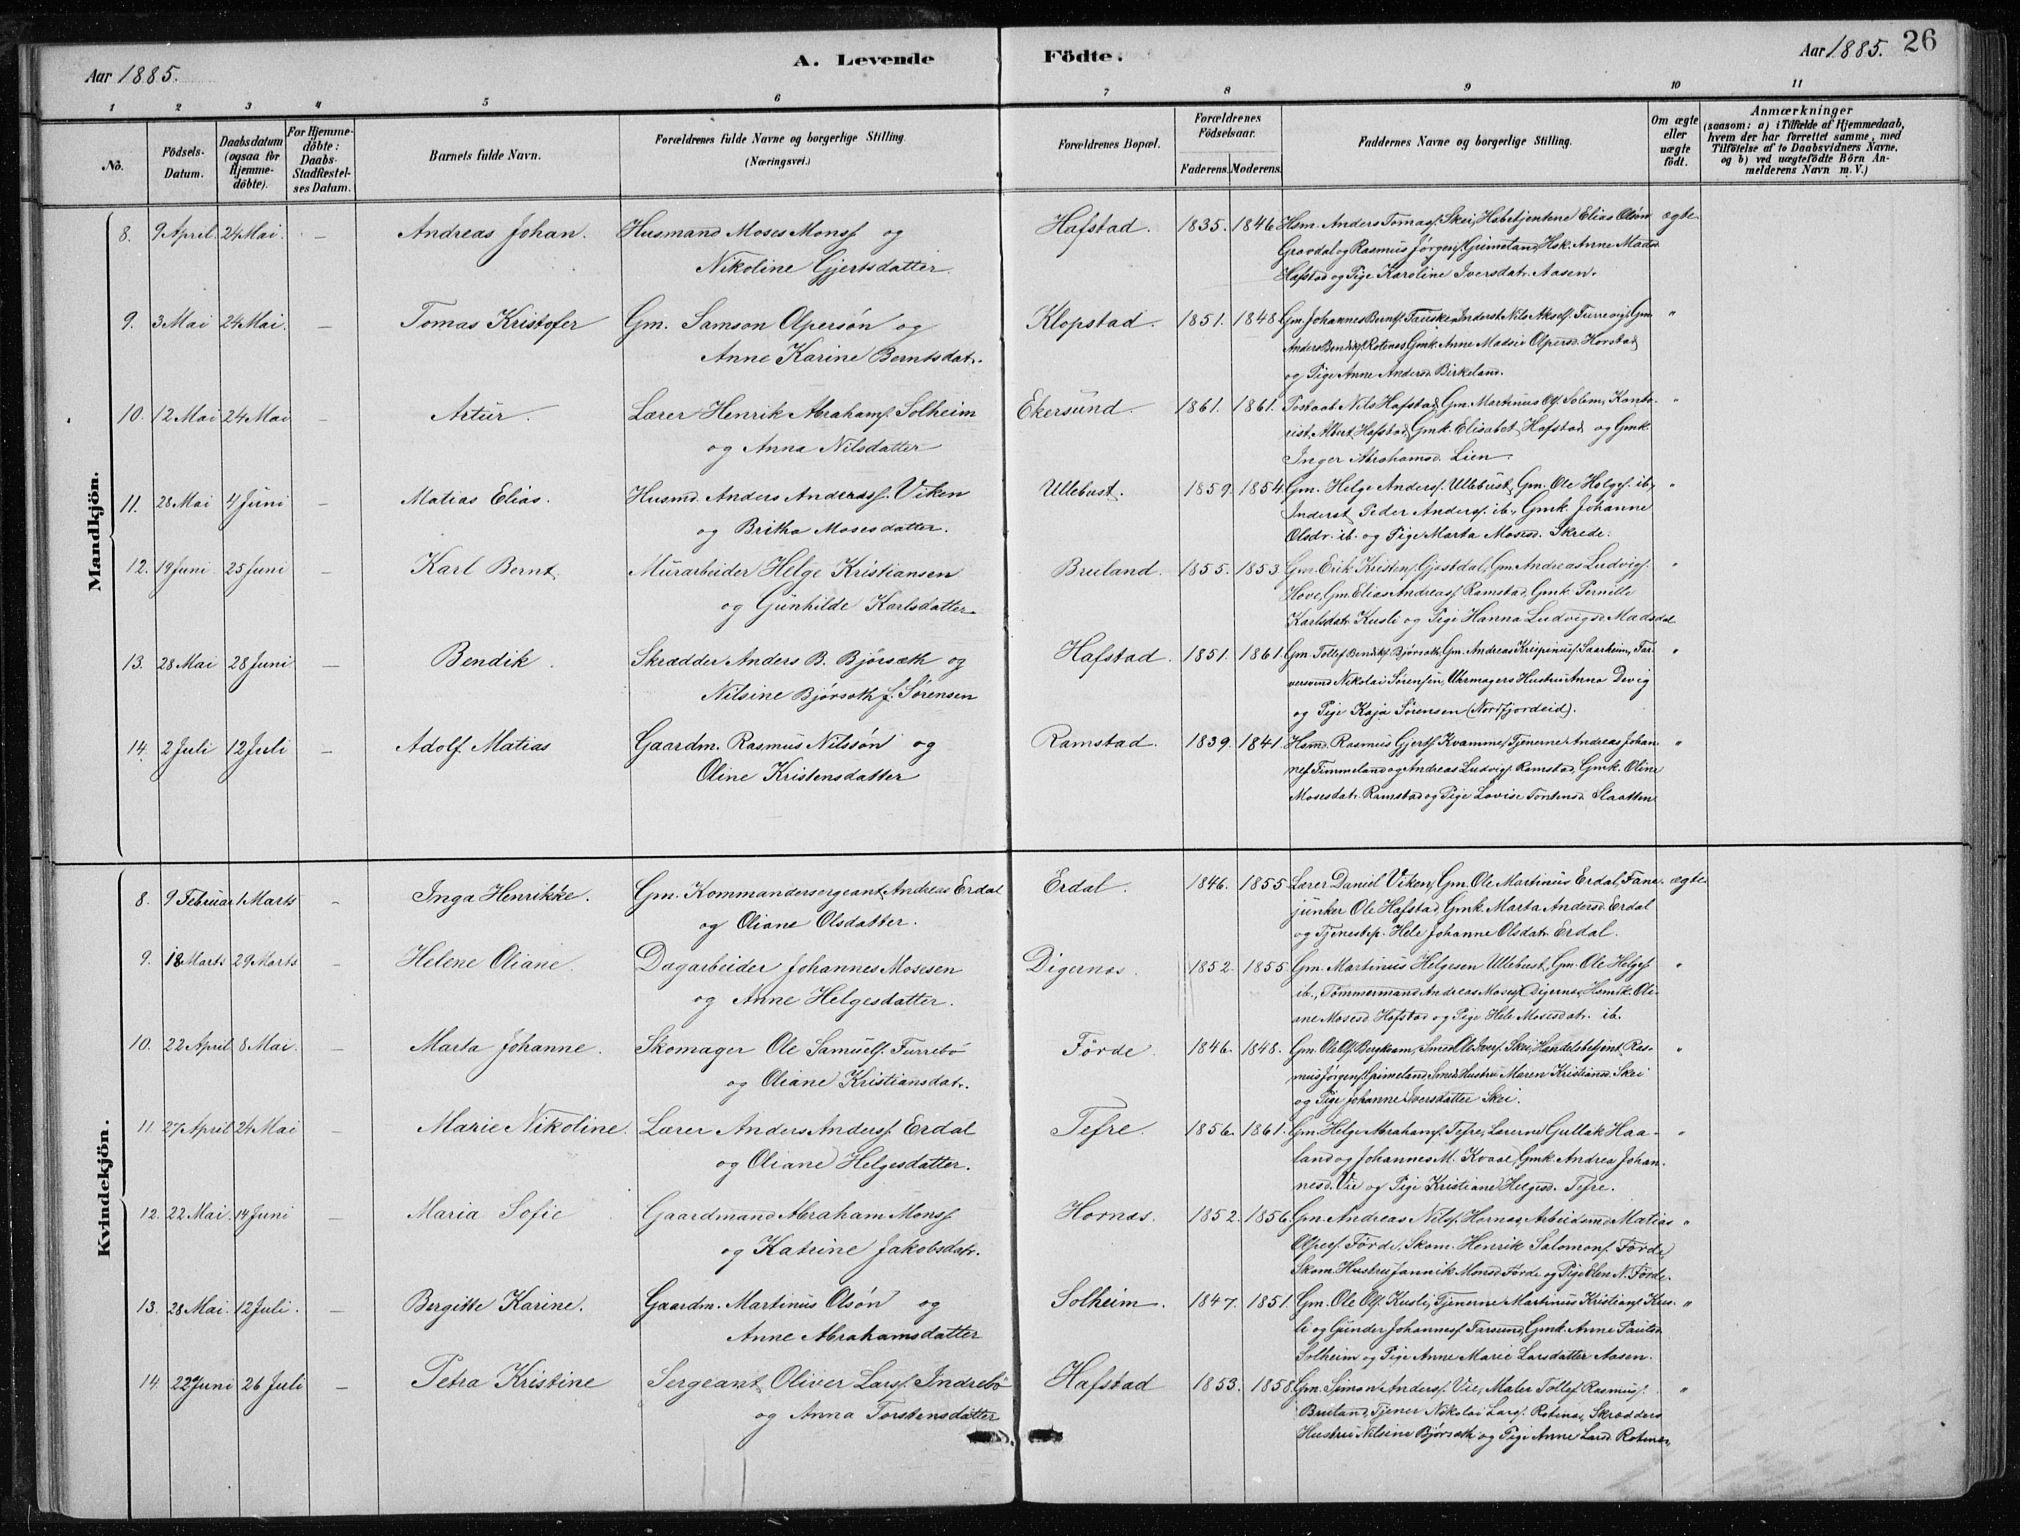 26
Aar 1885. A. Levende Födte. Aar 1885.
1 2 3 4 5 6 7 8 9 10 11
No. Födsels-Datum. Daabsdatum (ogsaa for Hjemme-döbte). For Hjemme-döbte: Daabs-Stadfæstel-ses Datum. Barnets fulde Navn. Forældrenes fulde Navne og borgerlige Stilling. (Næringsvei.) Forældrenes Bopæl. Forældrenes Födselsaar. Faderens. Moderens. Faddernes Navne og borgerlige Stilling. Om ægte eller uægte födt. Anmærkninger (saasom: a) i Tilfælde af Hjemmedaab, hvem der har forrettet samme, med Tilföielse af to Daabsvidners Navne, og b) ved uægtefödte Börn An-melderens Navn m. V.)
Mandkjön.
8. 9 April. 24 Mai. — Andreas Johan. Husmand Moses Monsſ. og Hafstad. 1835. 1846. Hsm. Anders Tomasſ. Skei, Elias Olsön ægte
Nikoline Gjertsdatter. Grovdal og Rasmus Jörgensſ. Grimeland, Hsk. Anne Madsd.
Hafstad og Pige Karoline Iversdatr. Aasen.
9. 3 Mai 24 Mai. — Tomas Kristofer Gm. Samson Olpersön og Klopstad. 1851. 1848. Gm. Johannes Berntsſ. Farsker, Inderst Nils Akselſ. Furrevig, Gm. "
Anne Karine Berntsdat. Anders Bendiksſ. Rotenes, Gmk. Anne Madsie Olpersd. Horstad
og Pige Anne Andersd. Birkeland.
10. 12 Mai 24 Mai — Artur. Lærer Henrik Abrahamsſ. Solheim Ekersund. 1861. 1861. Postaab. Nils Hafstad, Gm. Martinus Olsſ. Solem, Konto- "
og Anna Nilsdatter rist Albert Hafstad, Gmk. Elisabet Hafstad og Gmk.
Inger Abrahamsd. Lien.
11. 28 Mai 4 Juni — Matias Elias. Husmd. Anders Andersſ. Viken Ullebust. 1859. 1854. Gm. Helge Andersſ. Ullebust, Gm. Ole Helgesſ. ib., "
og Britha Mosesdatter. Inderst Peder Andersſ. ib., Gmk. Johanne
Olsdr. ib. og Pige Marta Mosesd. Skrede.
12. 19 Juni 25 Juni — Karl Bernt Murarbeider Helge Kristiansen Bruland. 1855. 1853. Gm. Erik Kristensſ. Gjostdal, Gm. Andreas Ludvigsſ. "
og Günhilde Karlsdatter. Hove, Gm. Elias Andreasſ. Ramstad, Gmk. Pernille
Karlsdatr. Kusli og Pige Hanna Ludvigsd. Madsdal
13. 28 Mai 28 Juni — Bendik. Skrædder Anders B. Björsæth og Hafstad. 1851. 1861. Gm. Tollef Bendiksſ. Björseth, Gm. Andreas Krispinusſ. Saarheim, Far- "
Nilsine Björseth f. Sörensen versvend Nikolai Sörensen, Uhrmagers Hustru Anna Devig
og Pige Kaja Sörensen (Nordfjordeid).
14. 2 Juli 12 Juli — Adolf Matias Gaardm. Rasmus Nilssön og Ramstad. 1839. 1841. Hsmd. Rasmus Gjertsſ. Kvamme, Tjenerne Andreas Johan- "
Oline Kristensdatter nesſ. Timmeland og Andreas Ludvigsſ. Ramstad, Gmk. Oline
Mosesdatr. Ramstad og Pige Lovise Torstensd. Slaatten
Kvindekjön.
8. 9 Februar 1 Marts — Inga Henrikke. Gm. Kommandersergeant Andreas Erdal Erdal. 1846. 1855. Lærer Daniel Viken, Gm. Ole Martinus Erdal, Fane- ægte
og Oliane Olsdatter. junker Ole Hafstad, Gmk. Marta Andersd. Erdal
og Tjenestep. Hele Johanne Olsdatr. Erdal.
9. 18 Marts 29 Marts — Helene Oliane. Dagarbeider Johannes Mosesen Digernes. 1852. 1855. Gm. Martinus Helgesen Ullebust, Gm. Ole Helgesſ. "
og Anne Helgesdatter. ib., Tömmermand Andreas Mosesſ. Digernes, Hsmk. Oli-
ane Mosesd. Hafstad og Pige Hele Mosesdatr. ib.
10. 22 April 8 Mai. — Marta Johanne. Skomager Ole Samuelsſ. Furrebö Förde. 1846. 1848. Gm. Ole Olsſ. Bergkvam, Smed Ole Iversſ. Skei, Handelsbetjent Ras- "
og Oliane Kristiansdat. mus Jörgensſ. Grimeland, Smeds Hustru Maren Kristiansd. Skei
og Pige Johanne Iversdatter Skei.
11. 27 April 24 Mai — Marie Nikoline. Lærer Anders Andersſ. Erdal Tefre. 1856. 1861. Gm. Helge Abrahamsſ. Tefre, Lærerne Gullak Haa- "
og Oliane Helgesdatter. land og Johannes M. Kvaal, Gmk. Andrea Johan-
nesd. Vie og Pige Kristiane Helgesd. Tefre.
12. 22 Mai. 14 Juni — Maria Sofie Gaardmand Abraham Monsſ. Hornes. 1852. 1856. Gm. Andreas Nilsſ. Hornes, Arbeidsmd. Matias "
og Katrine Jakobsdatr. Olpesſ. Förde, Skom. Henrik Salomonsſ. Förde,
Skom. Hustru Jannik Monsd. Förde og Pige Elen N. Förde.
13. 28 Mai. 12 Juli. — Bergitte Karine. Gaardm. Martinus Olsön og Solheim. 1847. 1851. Gm. Ole Olsſ. Kusli, Tjenerne Martinus Kristiansſ. Kus- "
Anne Abrahamsdatter li og Gunder Johannesſ. Farsund, Gmk. Anne Paulsd.
Solheim og Pige Anne Marie Larsdatter Aasen.
14. 22 Juni 26 Juli — Petra Kristine Sergeant Oliver Larsſ. Indrebö Hafstad 1853. 1858. Gm. Simon Andersſ. Vie, Maler Tollef Rasmusſ. "
og Anna Torstensdatter Bruland, Tjener Nikolai Larsſ. Rotnes, Skrædders
Hustru Nilsine Björseth og Pige Anne Larsd. Rotenes.